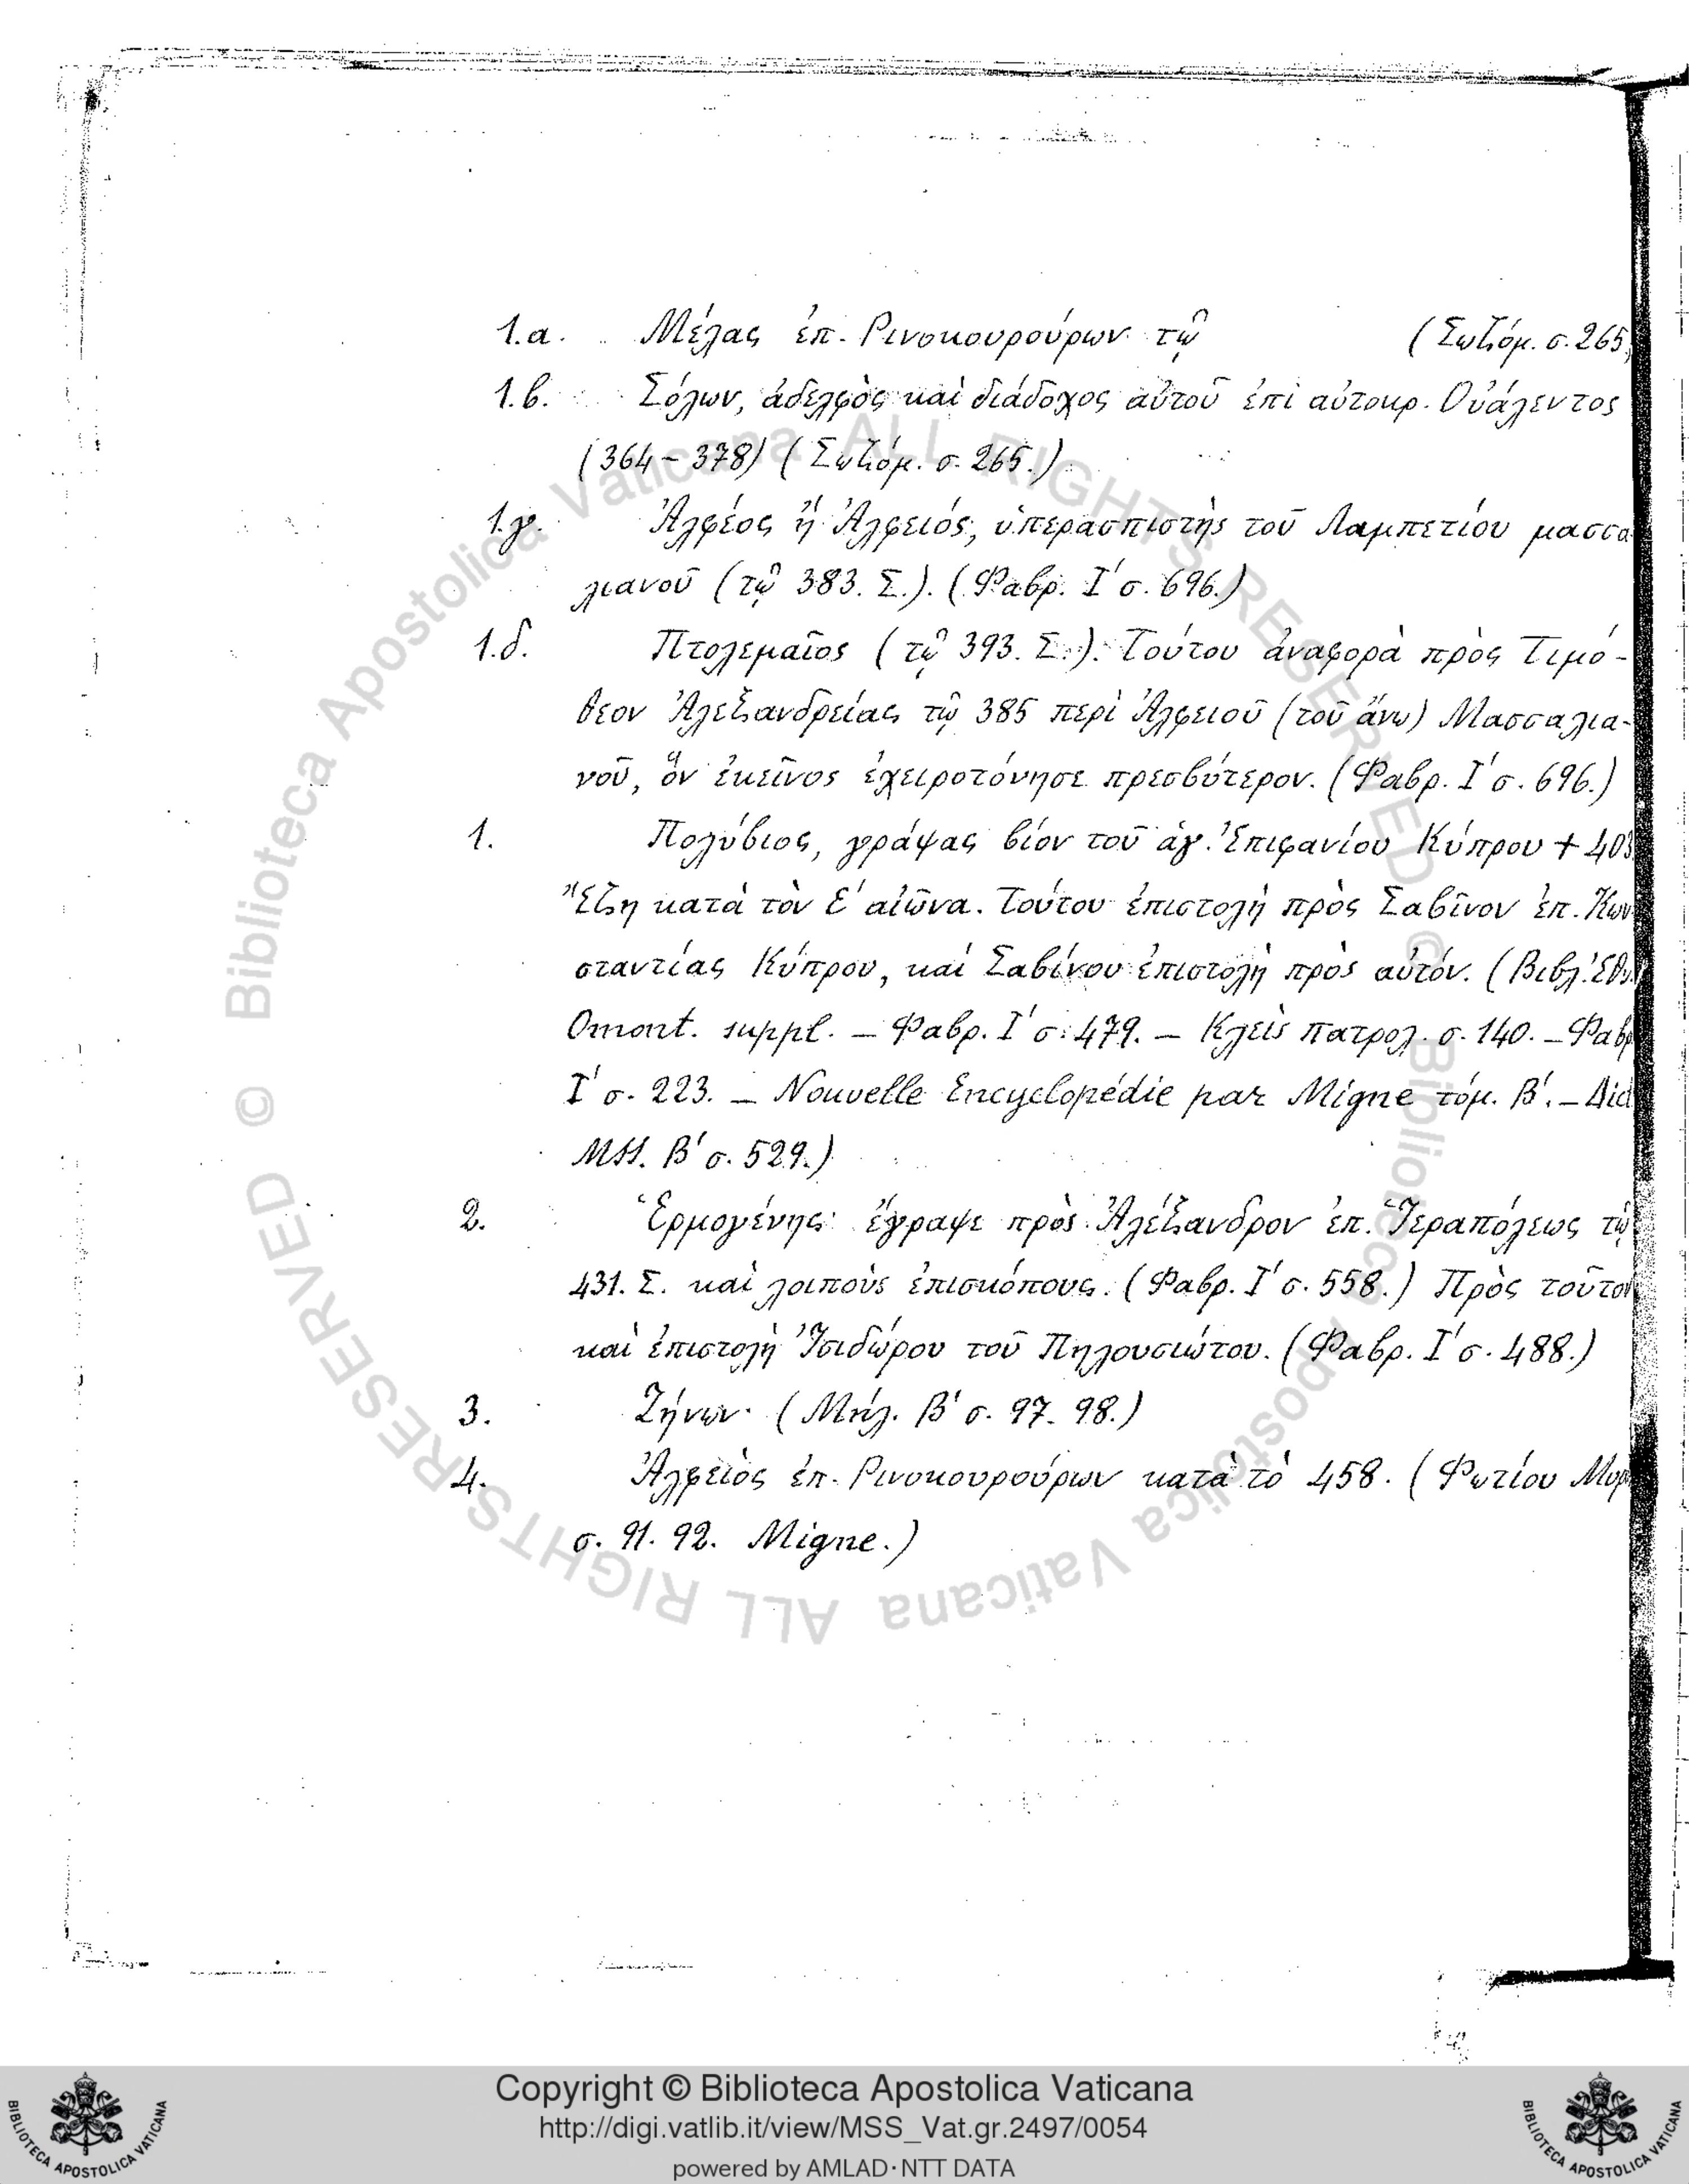 1.α. Μέλας ἐπ. Ρινοκουρούρων τῷ (Σωζόμ. σ. 265
1.β. Σόλων, ἀδελφὸς καὶ διάδοχος αὐτοῦ ἐπὶ αὐτοκρ. Οὐάλεντος
(364 – 378) (Σωζόμ. σ. 265.)
1.γ. Ἀλφέος ἢ Ἀλφειός, ὑπερασπιστὴς τοῦ Λαμπετίου μασσα
λιανοῦ (τῷ 383. Σ.). (Φαβρ. Ι΄ σ. 696.)
1.δ. Πτολεμαῖος (τῷ 393. Σ.). Τούτου ἀναφορὰ πρὸς Τιμό-
θεον Ἀλεξανδρείας τῷ 385 περὶ Ἀλφειοῦ (τοῦ ἄνω) Μασσαλια-
νοῦ, ὃν ἐκεῖνος ἐχειροτόνησε πρεσβύτερον. (Φαβρ. Ι΄ σ. 696.)
1. Πολύβιος, γράψας βίον τοῦ ἁγ. Ἐπιφανίου Κύπρου + 403
Ἔζη κατὰ τὸν Ε΄ αἰῶνα. Τούτου ἐπιστολὴ πρὸς Σαβῖνον ἐπ. Κων
σταντίας Κύπρου, καὶ Σαβίνου ἐπιστολὴ πρὸς αὐτόν. (Βιβλ. Ἐθν.
Omont. suppl. – Φαβρ. Ι΄ σ. 479. – Κλεὶς πατρολ. σ. 140. – Φαβρ
Ι΄ σ. 223. – Nouvelle Encyclopédie par Migne τόμ. Β΄. – Dict
MSS. Β΄ σ. 529.)
2. Ἑρμογένης· ἔγραψε πρὸς Ἀλέξανδρον ἐπ. Ἱεραπόλεως τῷ
431. Σ. καὶ λοιποὺς ἐπισκόπους. (Φαβρ. Ι΄ σ. 558.) Πρὸς τοῦτον
καὶ ἐπιστολὴ Ἰσιδώρου τοῦ Πηλουσιώτου. (Φαβρ. Ι΄ σ. 488.)
3. Ζήνων. (Μήλ. Β΄ σ. 97. 98.)
4. Ἀλφειὸς ἐπ. Ρινοκουρούρων κατὰ τὸ 458. (Φωτίου Μυρ
σ. 91. 92. Migne.)
© Biblioteca Apostolica Vaticana ALL RIGHTS RESERVED
© Biblioteca Apostolica Vaticana ALL RIGHTS RESERVED
Copyright © Biblioteca Apostolica Vaticana
http://digi.vatlib.it/view/MSS_Vat.gr.2497/0054
powered by AMLAD·NTT DATA
BIBLIOTECA APOSTOLICA VATICANA
BIBLIOTECA APOSTOLICA VATICANA